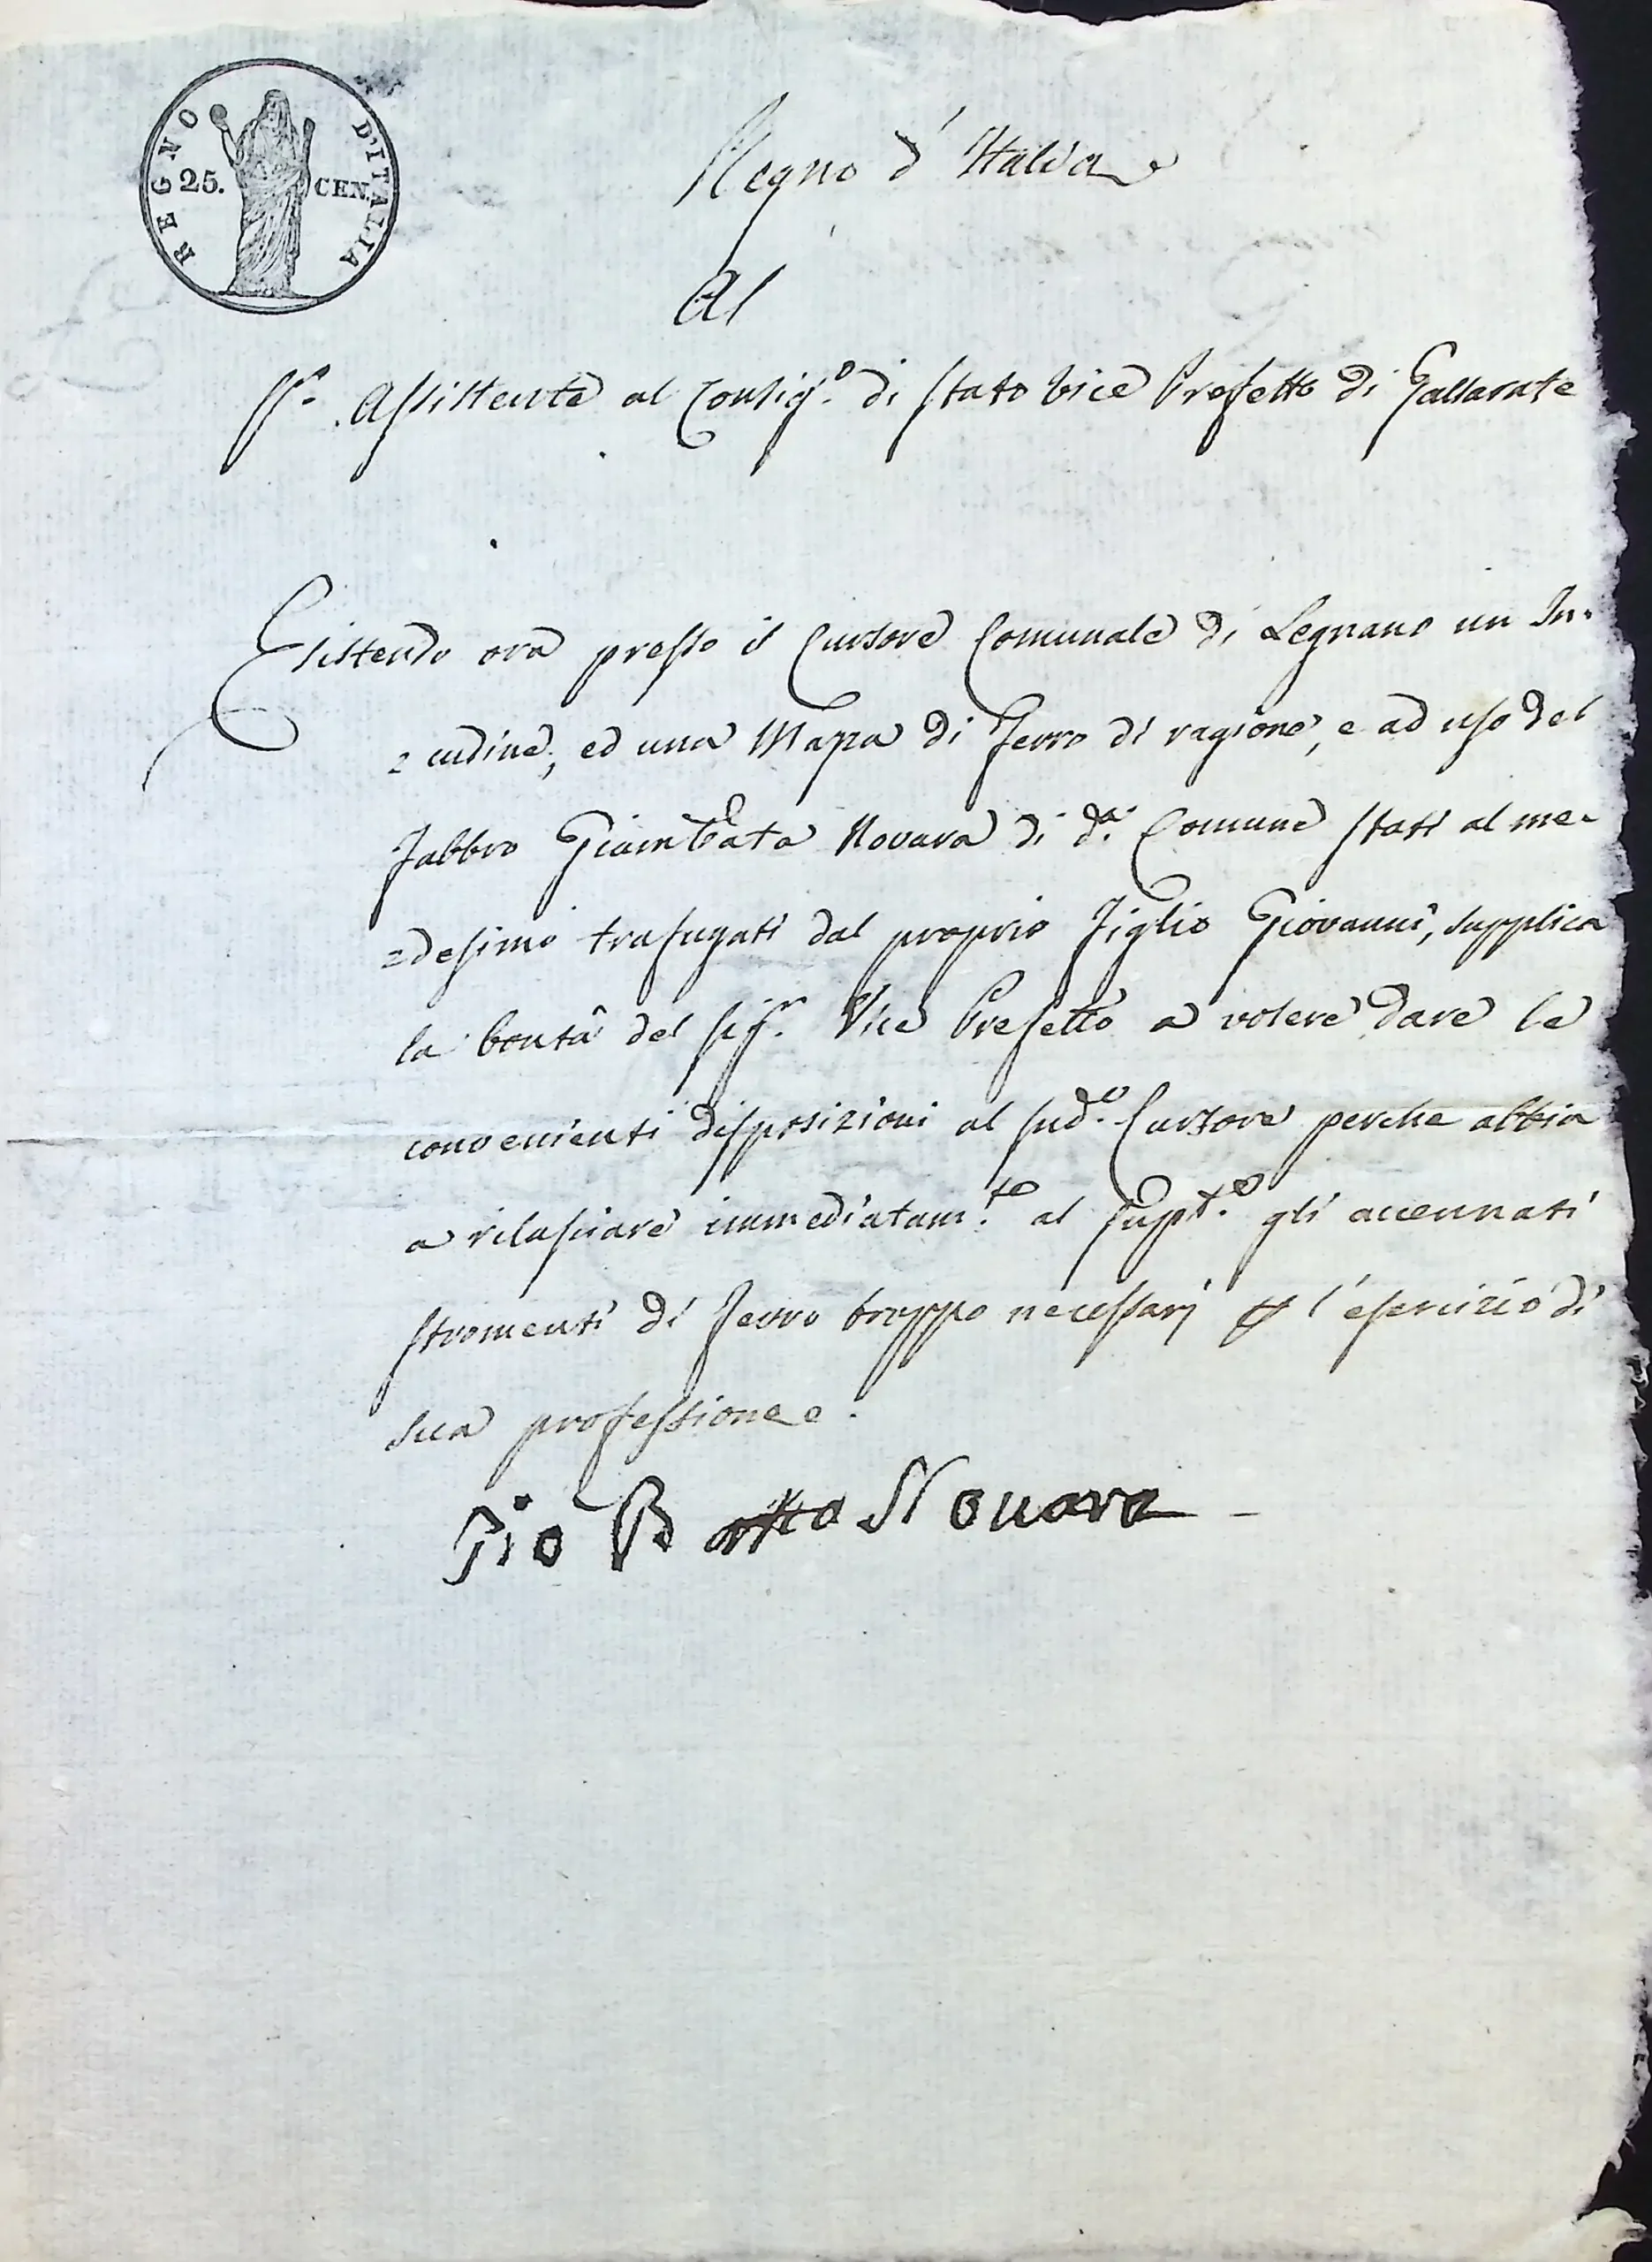 REGNO D'ITALIA
25. CEN.
Regno d'Italia
Al
Sr. Assistente al Consigo. di Stato Vice Prefetto di Gallarate
Esistendo ora presso il Cursore Comunale di Legnano un In-
=cudine, ed una Mazza di Ferro di ragione, e ad uso del
Fabbro Giambatta Novara di da. Comune stati al me-
=desimo trafugati dal proprio Figlio Giovanni, supplica
la bontà del Sigr. Vice Prefetto a volere dare le
convenienti disposizioni al sudo. Cursore perche abbia
a rilasciare immediatamte. al Suppte. gli accennati
stromenti di ferro troppo necessarj per l'esercizio di
sua professione.
Gio Batta Novara